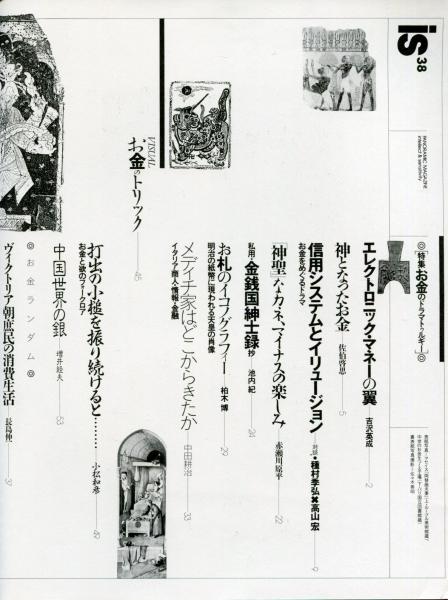 is
38
PANORAMIC MAGAZINE
intellect & sensitivity
◎[特集 お金のドラマトゥルギー]◎
エレクトロニック・マネーの翼
吉沢英成
2
神となったお金
佐伯啓思
5
信用システムとイリュージョン
お金をめぐるドラマ
対談・種村季弘✖高山 宏
9
「神聖」なカネ、マイナスの楽しみ
赤瀬川原平
22
私用・金銭国紳士録 抄
池内 紀
24
お札のイコノグラフィー
明治の紙幣に現われる天皇の肖像
柏木 博
29
メディチ家はどこからきたか
イタリア商人・情報・金融
中田耕治
33
VISUAL
お金のトリック
45
打出の小槌を振り続けると………
お金と欲のフォークロア
小松和彦
49
中国世界の銀
増井経夫
53
◎お金ランダム◎
ヴィクトリア朝庶民の消費生活
長島伸一
37